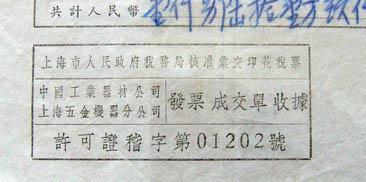 共計人民幣
上海市人民政府稅務局核准彙交印花稅票
中國工業器材公司
上海五金機器分公司
發票 成交單 收據
許可證稽字第01202號